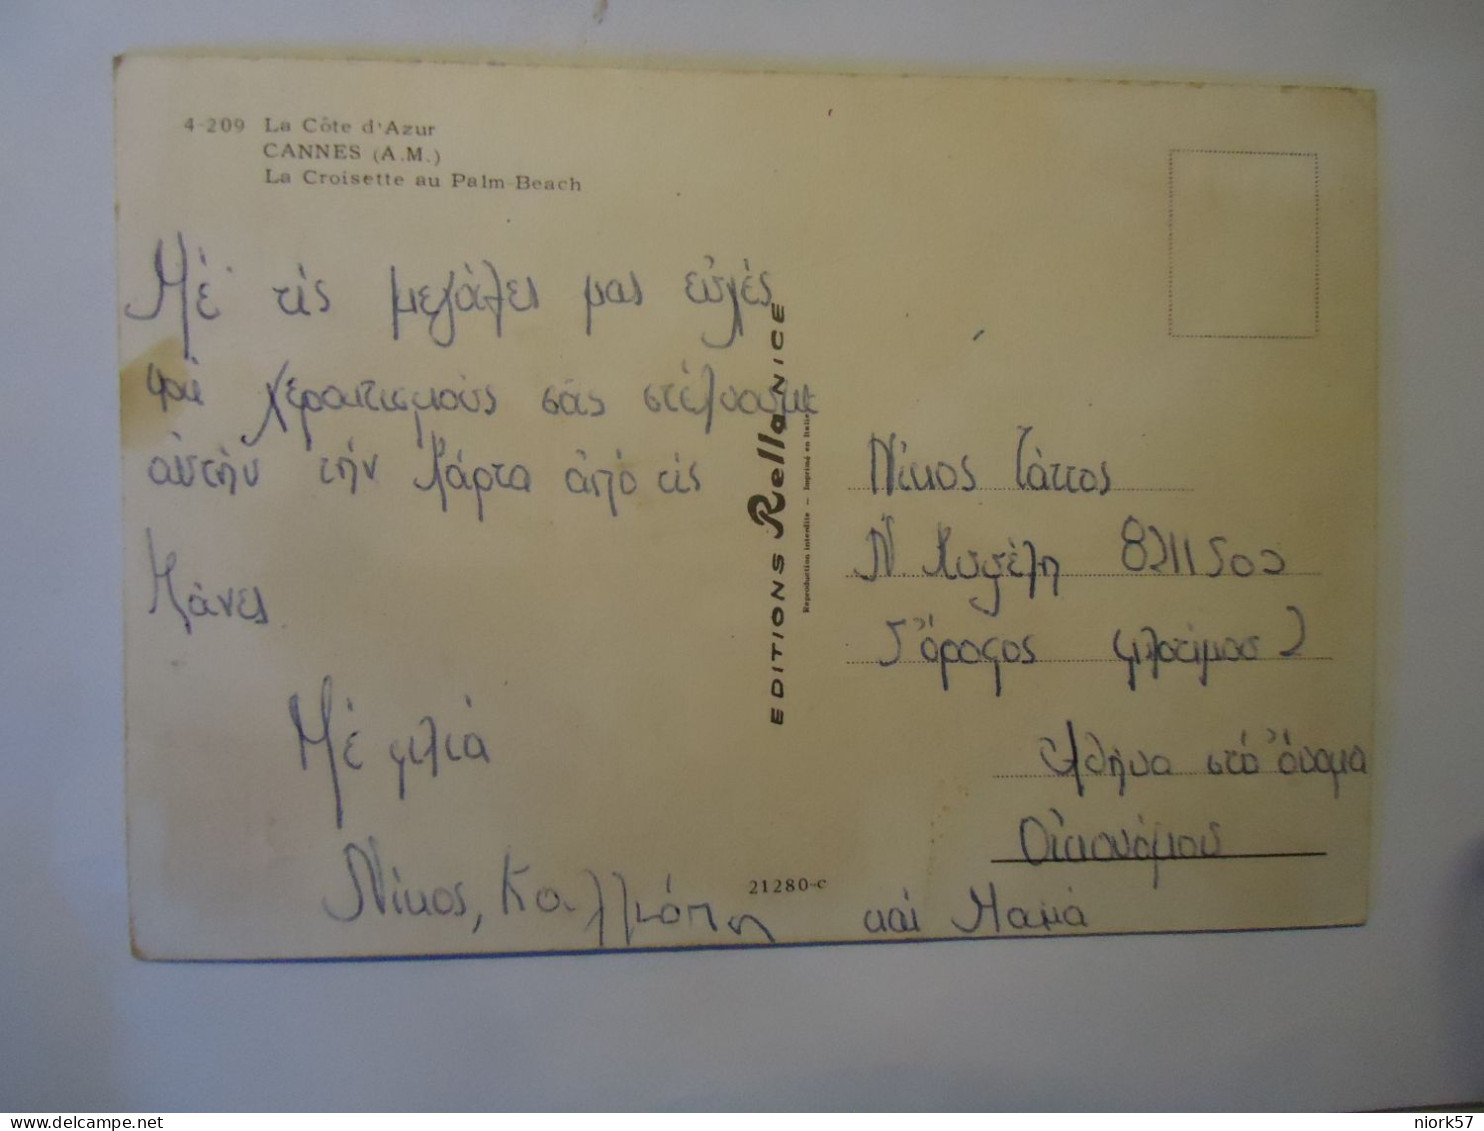 4-209 La Côte d'Azur
CANNES (A.M.)
La Croisette au Palm-Beach
Μέ τίς μεγάλες μας εὐχές
και χερατισμούς σάς στέλνουμε
αυτήν τήν Κάρτα ἀπό τίς
Κάνες
Μέ φιλιά
Νίκος, Καλλιόπη και Μαμά
EDITIONS Rella NICE
Reproduction interdite — Imprimé en Italie
21280-c
Νίκος Τάττος
Ν. Κυψέλη 8211502
3'όροφος φιλοτίμου 2
Αθήνα στό όνομα
Οἰκονόμου
niork57